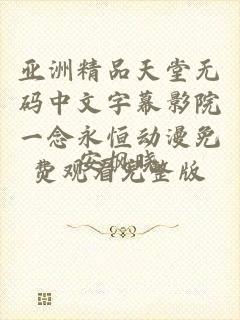 亚洲精品天堂无
码中文字幕影院
一念永恒动漫免
费观看完整版
安枫晓